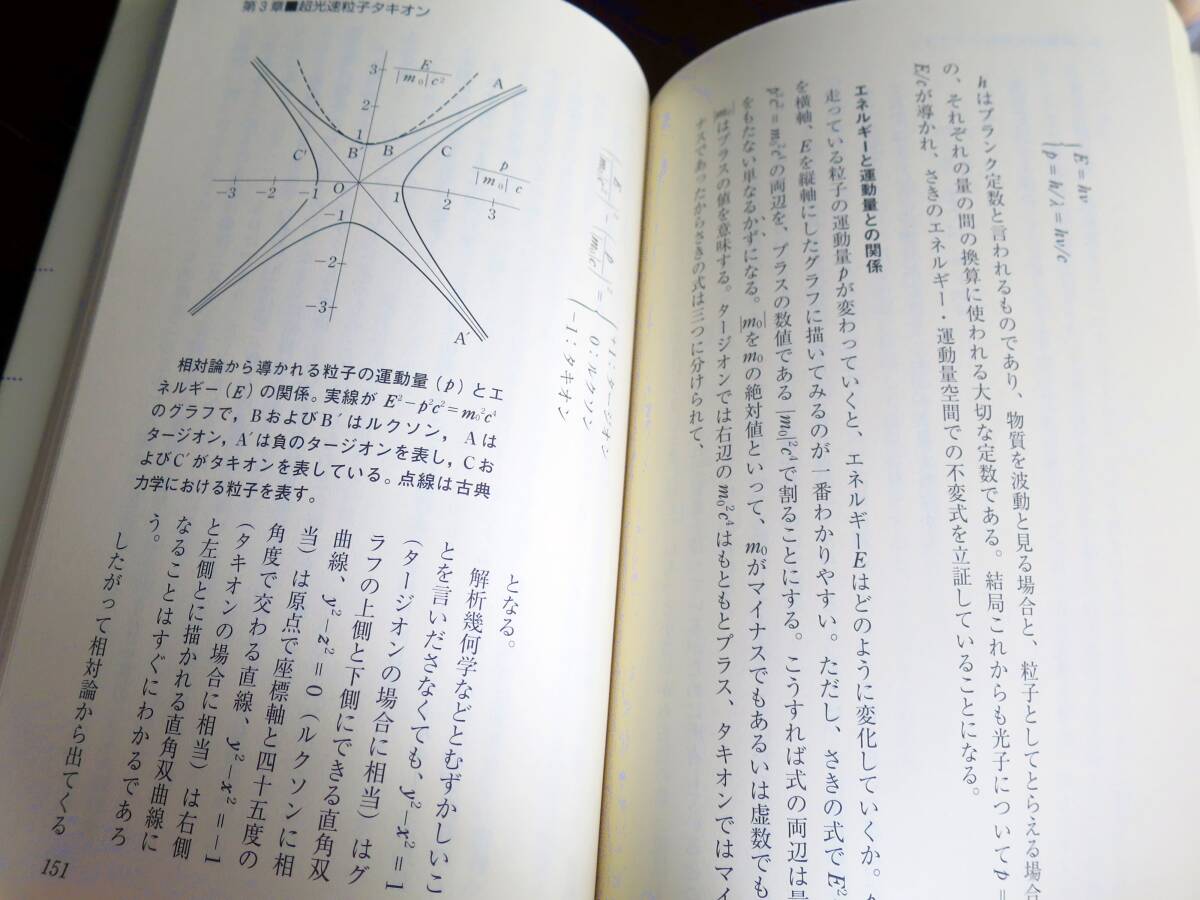 E=hν
p=h/λ=hν/c
hはプランク定数と言われるものであり、物質を波動と見る場合と、粒子としてとらえる場合
の、それぞれの量の間の換算に使われる大切な定数である。結局これからも光子についてp=
E/cが導かれ、さきのエネルギー・運動量空間での不変式を立証していることになる。
エネルギーと運動量との関係
走っている粒子の運動量pが変わっていくと、エネルギーEはどのように変化していくか。p
を横軸、Eを縦軸にしたグラフに描いてみるのが一番わかりやすい。ただし、さきの式でE²
p²c²=m₀²c⁴の両辺を、プラスの数値である|m₀|²c⁴で割ることにする。こうすれば式の両辺は量
をもたない単なるかずになる。|m₀|をm₀の絶対値といって、m₀がマイナスでもあるいは虚数でも
|m₀|はプラスの値を意味する。タージオンでは右辺のm₀²c⁴はもともとプラス、タキオンではマイ
ナスであったからさきの式は三つに分けられて、
第3章■超光速粒子タキオン
E
|m₀|c²
p
|m₀|c
3
2
1
A
B′
B
C
C′
O
-3
-2
-1
1
2
3
-1
-2
-3
A′
相対論から導かれる粒子の運動量(p)とエ
ネルギー(E)の関係。実線がE²-p²c²=m₀²c⁴
のグラフで,BおよびB′はルクソン,Aは
タージオン,A′は負のタージオンを表し,Cお
よびC′がタキオンを表している。点線は古典
力学における粒子を表す。
+1:タージオン
0:ルクソン
-1:タキオン
となる。
解析幾何学などとむずかしいこ
とを言いださなくても、y²-x²=1
(タージオンの場合に相当)はグ
ラフの上側と下側にできる直角双
曲線、y²-z²=0(ルクソンに相
当)は原点で座標軸と四十五度の
角度で交わる直線、y²-x²=-1
(タキオンの場合に相当)は右側
と左側とに描かれる直角双曲線に
なることはすぐにわかるであろ
う。
したがって相対論から出てくる
151